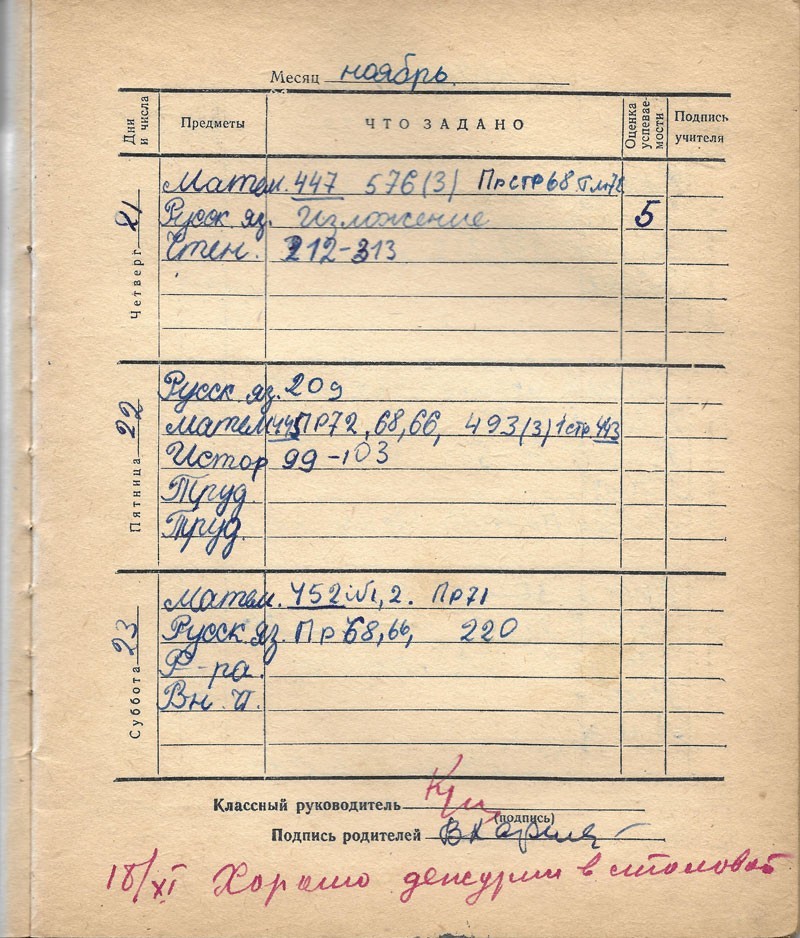 Месяц ноябрь
Дни и числа Предметы ЧТО ЗАДАНО Оценка успевае- мости Подпись учителя
Четверг 21
Матем. 447 576(3) Пр стр 68
Русск яз. Изложение 5
Чтен. 212-313
Пятница 22
Русск яз. 209
Матем 445 Пр 72, 68, 66, 493(3) 1 стр 443
Истор 99-103
Труд.
Труд.
Суббота 23
Матем. 452 №1, 2. Пр 71
Русск. яз. Пр 68, 66, 220
Ф-ра.
Вн. чт.
Классный руководитель
(подпись)
Подпись родителей
18/XI Хорошо дежурил в столовой